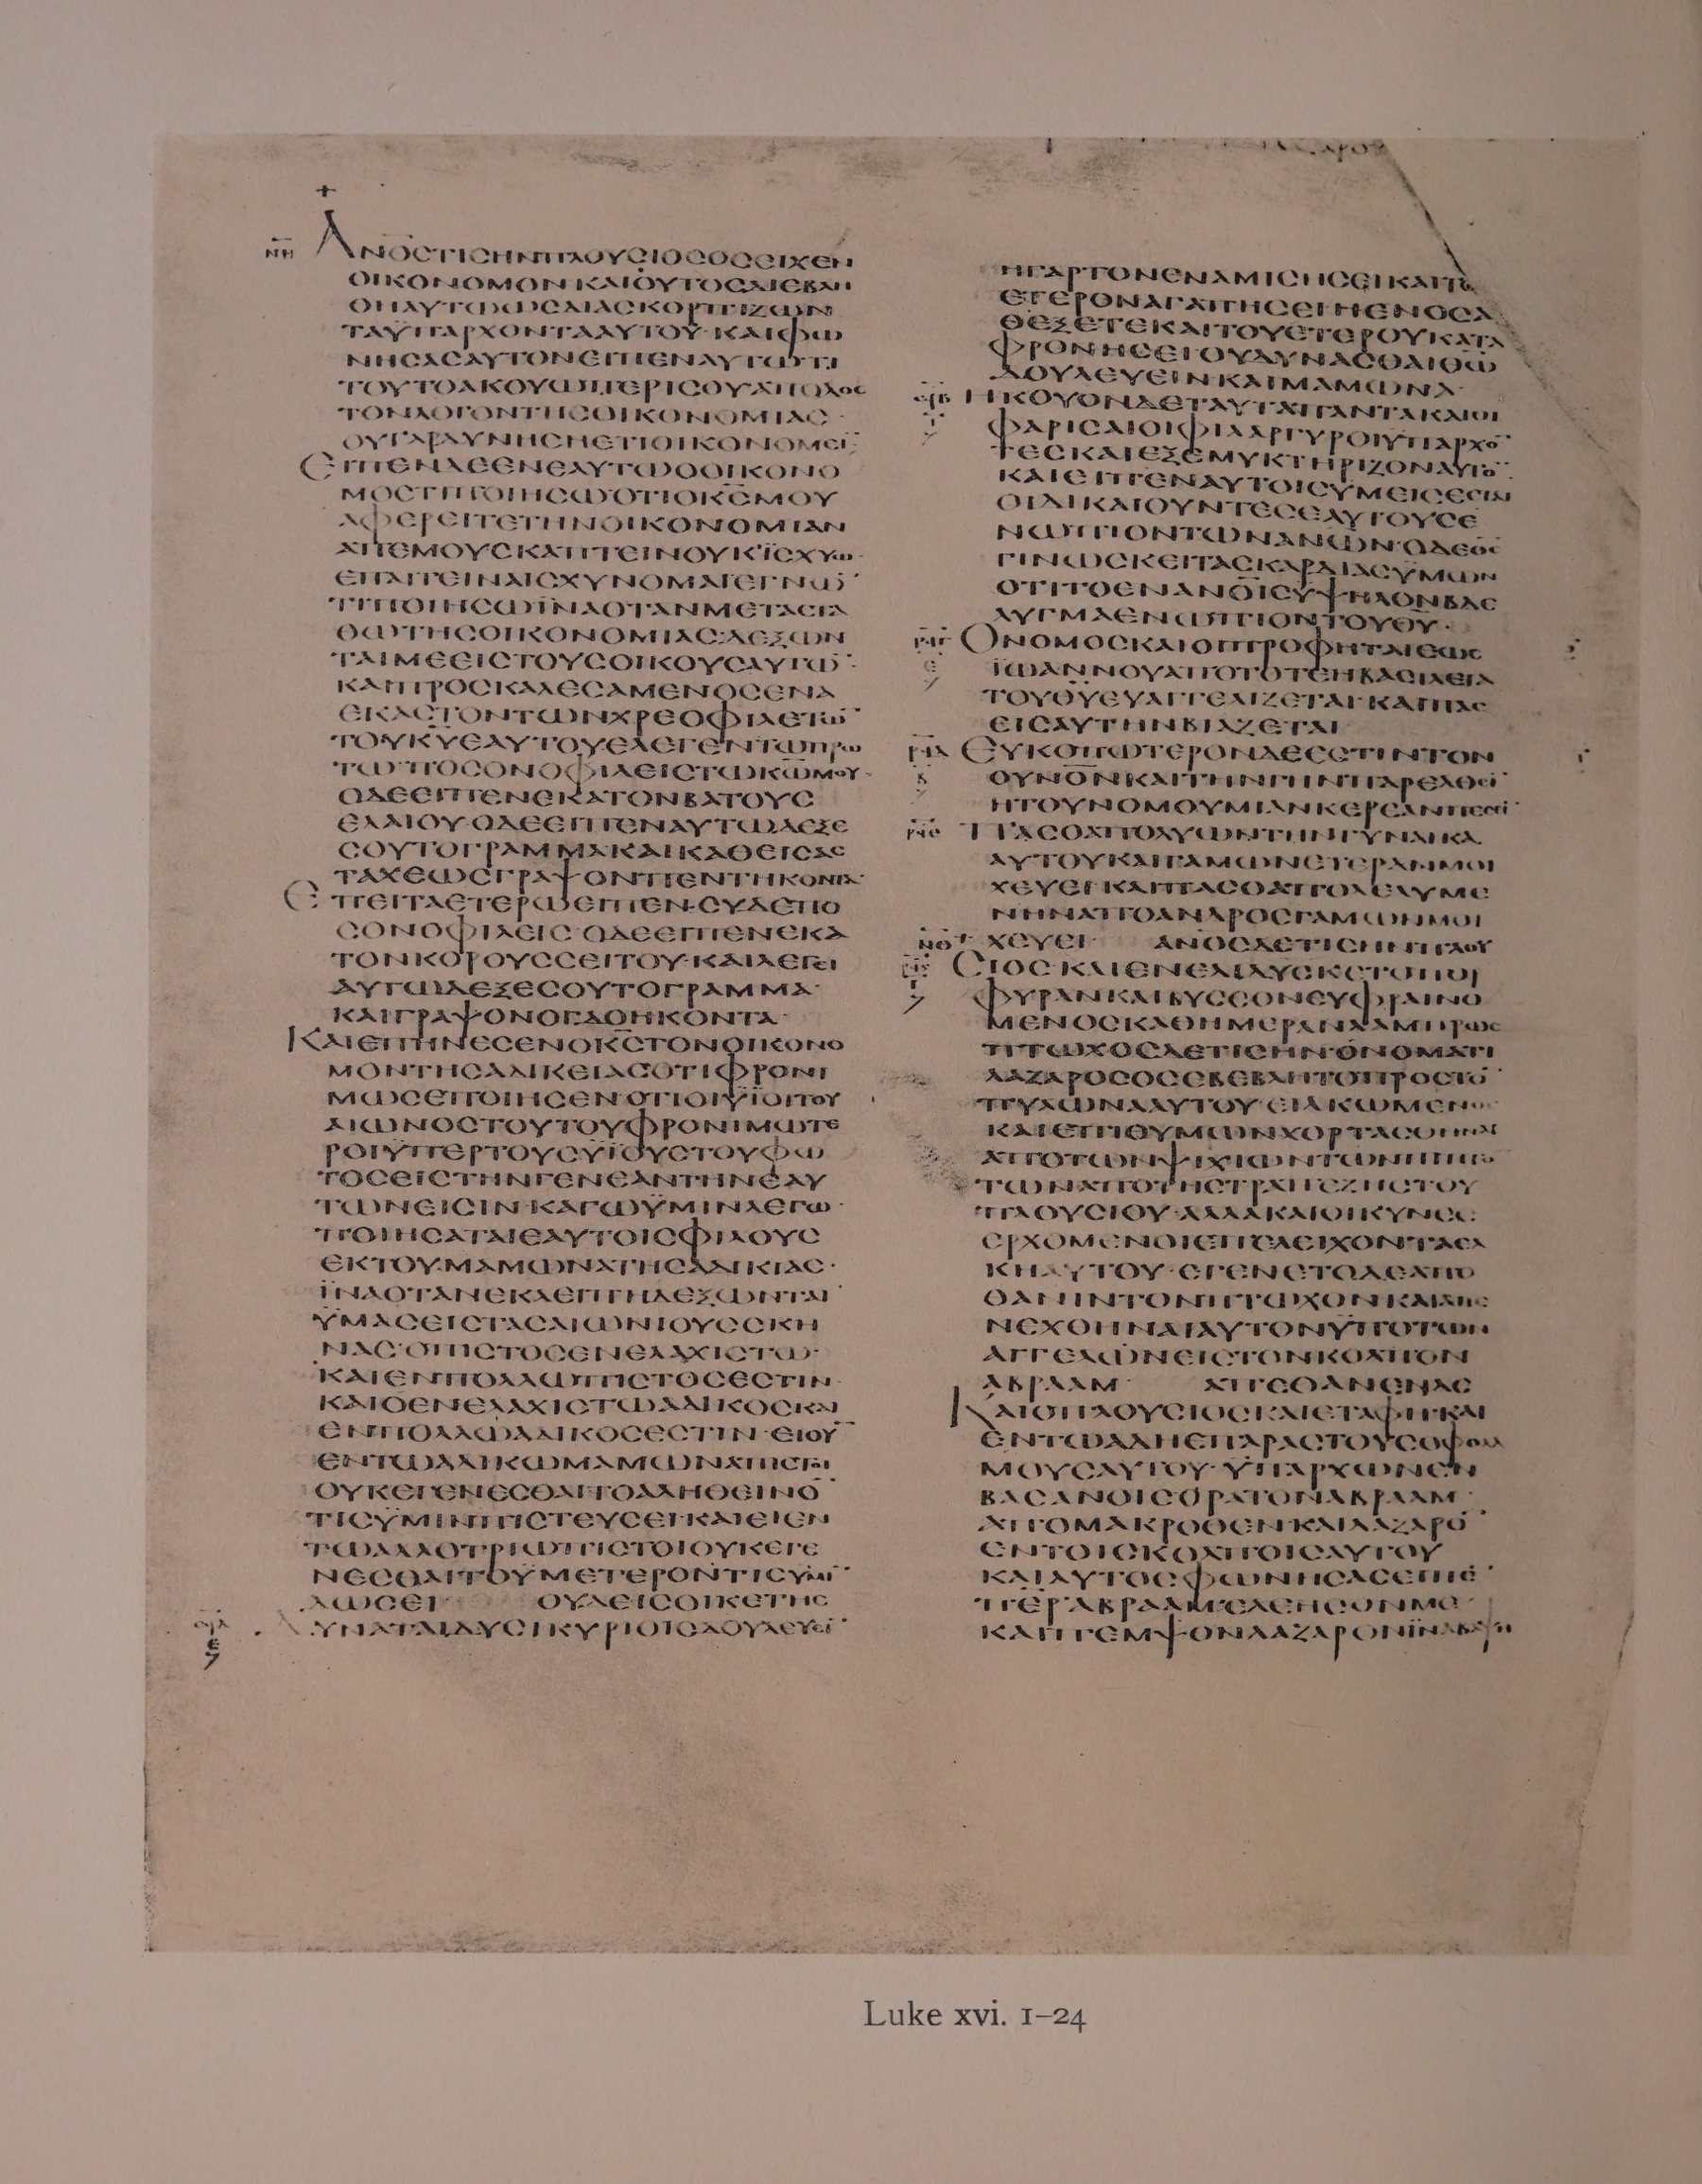 +
ΝΗ ΑΝΟΣΤΙΣΗΝΠΛΟΥΣΙΟΣΟΣΕΙΧΕΝ
ΟΙΚΟΝΟΜΟΝΚΑΙΟΥΤΟΣΔΙΕΒΛΗ
ΘΗΑΥΤΩΩΣΔΙΑΣΚΟΡΠΙΖΩΝ
ΤΑΫΠΑΡΧΟΝΤΑΑΥΤΟΥ·ΚΑΙΦΩ
ΝΗΣΑΣΑΥΤΟΝΕΙΠΕΝΑΥΤΩΤΙ
ΤΟΥΤΟΑΚΟΥΩΠΕΡΙΣΟΥΑΠΟΔΟΣ
ΤΟΝΛΟΓΟΝΤΗΣΟΙΚΟΝΟΜΙΑΣ·
ΟΥΓΑΡΔΥΝΗΣΗΕΤΙΟΙΚΟΝΟΜΕΙ̅
ΕΙΠΕΝΔΕΕΝΕΑΥΤΩΟΟΙΚΟΝΟ
ΜΟΣΤΙΠΟΙΗΣΩΟΤΙΟΚΣΜΟΥ
ΑΦΕΡΕΙΤΕΤΗΝΟΙΚΟΝΟΜΙΑΝ
ΑΠΕΜΟΥΣΚΑΠΤΕΙΝΟΥΚΪΣΧΥΩ·
ΕΠΑΙΤΕΙΝΑΙΣΧΥΝΟΜΑΙΕΓΝΩ̅
ΤΙΠΟΙΗΣΩΪΝΑΟΤΑΝΜΕΤΑΣΤΑ
ΘΩΤΗΣΟΙΚΟΝΟΜΙΑΣΔΕΞΩΝ
ΤΑΙΜΕΕΙΣΤΟΥΣΟΙΚΟΥΣΑΥΤΩ̅·
ΚΑΙΠΡΟΣΚΑΛΕΣΑΜΕΝΟΣΕΝΑ
ΕΚΑΣΤΟΝΤΩΝΧΡΕΟΦΙΛΕΤΩ̅
ΤΟΥΚΥΕΑΥΤΟΥΕΛΕΓΕΝΤΩΠΡΩ
ΤΩ·ΠΟΣΟΝΟΦΙΛΕΙΣΤΩΚΩΜΟΥ·
ΟΔΕΕΙΠΕΝΕΚΑΤΟΝΒΑΤΟΥΣ
ΕΛΑΙΟΥ·ΟΔΕΕΙΠΕΝΑΥΤΩΔΕΞΕ
ΣΟΥΤΟΓΡΑΜΜΑΚΑΙΚΑΘΕΙΣΑΣ
ΤΑΧΕΩΣΓΡΑΨΟΝΠΕΝΤΗΚΟΝΤΑ·
ΕΠΕΙΤΑΕΤΕΡΩΕΙΠΕΝ·ΣΥΔΕΠΟ
ΣΟΝΟΦΙΛΕΙΣ·ΟΔΕΕΙΠΕΝΕΚΑ
ΤΟΝΚΟΡΟΥΣΣΕΙΤΟΥ·ΚΑΙΛΕΓΕΙ
ΑΥΤΩΔΕΞΕΣΟΥΤΟΓΡΑΜΜΑ·
ΚΑΙΓΡΑΨΟΝΟΓΔΟΗΚΟΝΤΑ·
ΚΑΙΕΠΗΝΕΣΕΝΟΚΣΤΟΝΟΙΚΟΝΟ
ΜΟΝΤΗΣΑΔΙΚΕΙΑΣΟΤΙΦΡΟΝΙ
ΜΩΣΕΠΟΙΗΣΕΝ·ΟΤΙΟΙΫΙΟΙΤΟΥ
ΑΙΩΝΟΣΤΟΥΤΟΥΦΡΟΝΙΜΩΤΕ
ΡΟΙΫΠΕΡΤΟΥΣΥΪΟΥΣΤΟΥΦΩ
ΤΟΣΕΙΣΤΗΝΓΕΝΕΑΝΤΗΝΕΑΥ
ΤΩΝΕΙΣΙΝ·ΚΑΓΩΫΜΙΝΛΕΓΩ·
ΠΟΙΗΣΑΤΑΙΕΑΥΤΟΙΣΦΙΛΟΥΣ
ΕΚΤΟΥΜΑΜΩΝΑΤΗΣΑΔΙΚΙΑΣ·
ΪΝΑΟΤΑΝΕΚΛΕΙΠΗΔΕΞΩΝΤΑΙ
ΫΜΑΣΕΙΣΤΑΣΑΙΩΝΙΟΥΣΣΚΗ
ΝΑΣ·ΟΠΙΣΤΟΣΕΝΕΛΑΧΙΣΤΩ·
ΚΑΙΕΝΠΟΛΛΩΠΙΣΤΟΣΕΣΤΙΝ·
ΚΑΙΟΕΝΕΛΑΧΙΣΤΩΑΔΙΚΟΣΚΑΙ
ΕΝΠΟΛΛΩΑΔΙΚΟΣΕΣΤΙΝ·ΕΙΟΥ̅
ΕΝΤΩΑΔΙΚΩΜΑΜΩΝΑΠΙΣΤΟΙ
ΟΥΚΕΓΕΝΕΣΘΑΙΤΟΑΛΗΘΕΙΝΟ̅
ΤΙΣΥΜΙΝΠΙΣΤΕΥΣΕΙ·ΚΑΙΕΙΕΝ
ΤΩΑΛΛΟΤΡΙΩΠΙΣΤΟΙΟΥΚΕΓΕ
ΝΕΣΘΑΙΤΟΥΜΕΤΕΡΟΝΤΙΣΥΜΙ̅
ΔΩΣΕΙ· ΟΥΔΕΙΣΟΙΚΕΤΗΣ
ΔΥΝΑΤΑΙΔΥΣΙΚΥΡΙΟΙΣΔΟΥΛΕΥΕΙ̅
ΗΓΑΡΤΟΝΕΝΑΜΙΣΗΣΕΙΚΑΙΤΟ̅
ΕΤΕΡΟΝΑΓΑΠΗΣΕΙΗΕΝΟΣΑ̅
ΘΕΞΕΤΕΚΑΙΤΟΥΕΤΕΡΟΥΚΑΤΑ
ΦΡΟΝΗΣΕΙΟΥΔΥΝΑΣΘΑΙΘΩ
ΔΟΥΛΕΥΕΙΝΚΑΙΜΑΜΩΝΑ·
ΗΚΟΥΟΝΔΕΤΑΥΤΑΠΑΝΤΑΚΑΙΟΙ
ΦΑΡΙΣΑΙΟΙΦΙΛΑΡΓΥΡΟΙΫΠΑΡΧΟ̅
ΤΕΣΚΑΙΕΞΕΜΥΚΤΗΡΙΖΟΝΑΥΤΟ̅
ΚΑΙΕΙΠΕΝΑΥΤΟΙΣΥΜΕΙΣΕΣΤΑΙ
ΟΙΔΙΚΑΙΟΥΝΤΕΣΕΑΥΤΟΥΣΕ
ΝΩΠΙΟΝΤΩΝΑΝΩΝ·ΟΔΕΘΣ
ΓΙΝΩΣΚΕΙΤΑΣΚΑΡΔΙΑΣΫΜΩΝ
ΟΤΙΤΟΕΝΑΝΟΙΣΥΨΗΛΟΝΒΔΕ
ΛΥΓΜΑΕΝΩΠΙΟΝΤΟΥΘΥ·
ΟΝΟΜΟΣΚΑΙΟΙΠΡΟΦΗΤΑΙΕΩΣ
ΪΩΑΝΝΟΥΑΠΟΤΟΤΕΗΒΑΣΙΛΕΙΑ
ΤΟΥΘΥΕΥΑΓΓΕΛΙΖΕΤΑΙ·ΚΑΙΠΑΣ
ΕΙΣΑΥΤΗΝΒΙΑΖΕΤΑΙ·
ΕΥΚΟΠΩΤΕΡΟΝΔΕΕΣΤΙΝΤΟΝ
ΟΥΝΟΝΚΑΙΤΗΝΓΗΝΠΑΡΕΛΘΕΙ̅
ΗΤΟΥΝΟΜΟΥΜΙΑΝΚΕΡΕΑΝΠΕΣΕΙ̅
ΠΑΣΟΑΠΟΛΥΩΝΤΗΝΓΥΝΑΙΚΑ
ΑΥΤΟΥΚΑΙΓΑΜΩΝΕΤΕΡΑΝΜΟΙ
ΧΕΥΕΙ·ΚΑΙΠΑΣΟΑΠΟΛΕΛΥΜΕ
ΝΗΝΑΠΟΑΝΔΡΟΣΓΑΜΩΝΜΟΙ
ΧΕΥΕΙ· ΑΝΟΣΔΕΤΙΣΗΝΠΛΟΥ
ΣΙΟΣΚΑΙΕΝΕΔΙΔΥΣΚΕΤΟΠΟΡ
ΦΥΡΑΝΚΑΙΒΥΣΣΟΝΕΥΦΡΑΙΝΟ
ΜΕΝΟΣΚΑΘΗΜΕΡΑΝΛΑΜΠΡΩΣ
ΠΤΩΧΟΣΔΕΤΙΣΗΝ·ΟΝΟΜΑΤΙ
ΛΑΖΑΡΟΣΟΣΕΒΕΒΛΗΤΟΠΡΟΣΤΟ̅
ΠΥΛΩΝΑΑΥΤΟΥ·ΕΙΛΚΩΜΕΝΟΣ·
ΚΑΙΕΠΙΘΥΜΩΝΧΟΡΤΑΣΘΗΝΑΙ
ΑΠΟΤΩΝΨΙΧΙΩΝΤΩΝΠΙΠΤΟ̅
ΤΩΝΑΠΟΤΗΣΤΡΑΠΕΖΗΣΤΟΥ
ΠΛΟΥΣΙΟΥ·ΑΛΛΑΚΑΙΟΙΚΥΝΕΣ
ΕΡΧΟΜΕΝΟΙΕΠΕΛΕΙΧΟΝΤΑΕΛ
ΚΗΑΥΤΟΥ·ΕΓΕΝΕΤΟΔΕΑΠΟ
ΘΑΝΙΝΤΟΝΠΤΩΧΟΝΚΑΙΑΠΕ
ΝΕΧΘΗΝΑΙΑΥΤΟΝΫΠΟΤΩΝ
ΑΓΓΕΛΩΝΕΙΣΤΟΝΚΟΛΠΟΝ
ΑΒΡΑΑΜ· ΑΠΕΘΑΝΕΝΔΕ
ΚΑΙΟΠΛΟΥΣΙΟΣΚΑΙΕΤΑΦΗ·ΚΑΙ
ΕΝΤΩΑΔΗΕΠΑΡΑΣΤΟΥΣΟΦΘΑΛ
ΜΟΥΣΑΥΤΟΥ·ΫΠΑΡΧΩΝΕΝ
ΒΑΣΑΝΟΙΣΟΡΑΤΟΝΑΒΡΑΑΜ·
ΑΠΟΜΑΚΡΟΘΕΝΚΑΙΛΑΖΑΡΟ̅
ΕΝΤΟΙΣΚΟΛΠΟΙΣΑΥΤΟΥ
ΚΑΙΑΥΤΟΣΦΩΝΗΣΑΣΕΙΠΕ̅
ΠΕΡΑΒΡΑΑΜΕΛΕΗΣΟΝΜΕ·
ΚΑΙΠΕΜΨΟΝΛΑΖΑΡΟΝΪΝΑΒΑΨΗ
Luke xvi. 1–24